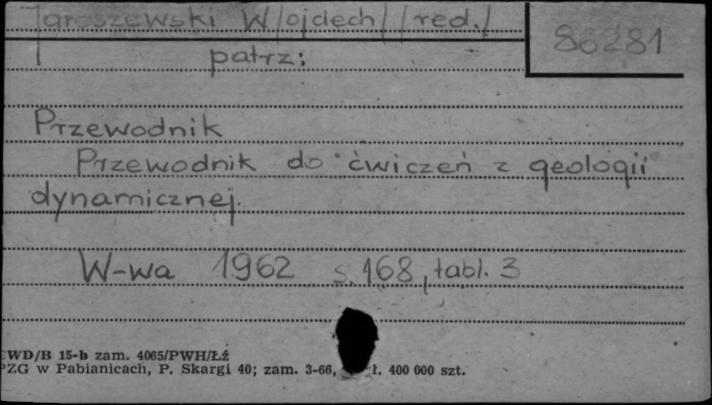 Jaroszewski W/ojciech/ /red./
86281
patrz:
Przewodnik
Przewodnik do ćwiczeń z geologii
dynamicznej.
W-wa 1962 s. 168, tabl. 3
WD/B 15-b zam. 4065/PWH/Łź
PZG w Pabianicach, P. Skargi 40; zam. 3-66, ł. 400 000 szt.